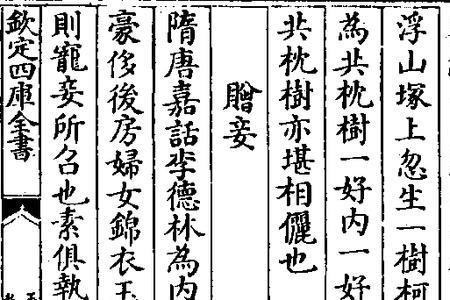 浮山塚上忽生一樹柯
為共枕樹一好内一好
共枕樹亦堪相儷也
贈妾
隋唐嘉話李德林為内
豪侈後房婦女錦衣玉
則寵妾所召也素俱執
欽定四庫全書